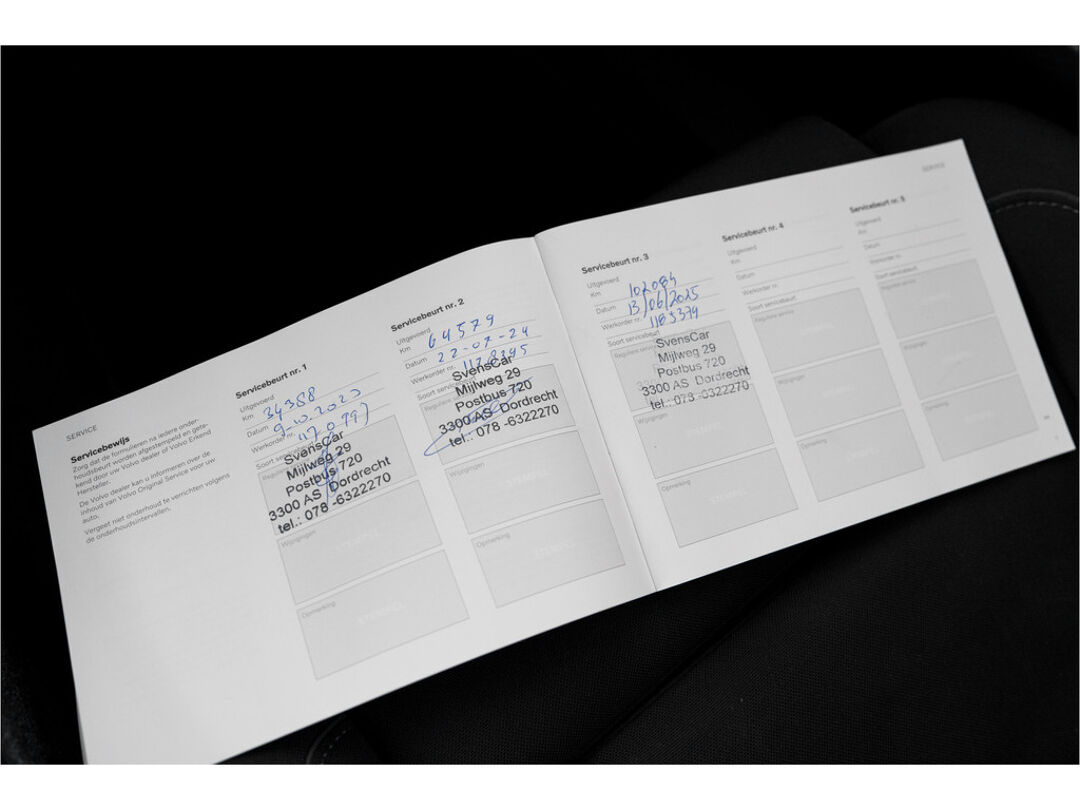 SERVICE
Servicebewijs
Zorg dat de formulieren na iedere onder-
houdsbeurt worden afgestempeld en gete-
kend door uw Volvo dealer of Volvo Erkend
Hersteller.
De Volvo dealer kan u informeren over de
inhoud van Volvo Original Service voor uw
auto.
Vergeet niet onderhoud te verrichten volgens
de onderhoudsintervallen.
Servicebeurt nr. 1
Uitgevoerd
Km 34388
Datum 9-10.2020
Werkorder nr.
Soort servicebeurt
SvensCar
Mijlweg 29
Postbus 720
3300 AS Dordrecht
tel.: 078 -6322270
Wijzigingen
Opmerking
Servicebeurt nr. 2
Uitgevoerd
Km 64579
Datum 22-07-24
Werkorder nr.
SvensCar
Mijlweg 29
Postbus 720
3300 AS Dordrecht
tel.: 078 -6322270
Wijzigingen
Opmerking
SERVICE
Servicebeurt nr. 3
Uitgevoerd
Km 102084
Datum 13/06/2025
Werkorder nr. 1183379
Soort servicebeurt
SvensCar
Mijlweg 29
Postbus 720
3300 AS Dordrecht
tel.: 078 -6322270
Wijzigingen
Opmerking
Servicebeurt nr. 4
Uitgevoerd
Km
Datum
Werkorder nr.
Soort servicebeurt
Reguliere service
Wijzigingen
Opmerking
Servicebeurt nr. 5
Uitgevoerd
Km
Datum
Werkorder nr.
Soort servicebeurt
Reguliere service
Wijzigingen
Opmerking